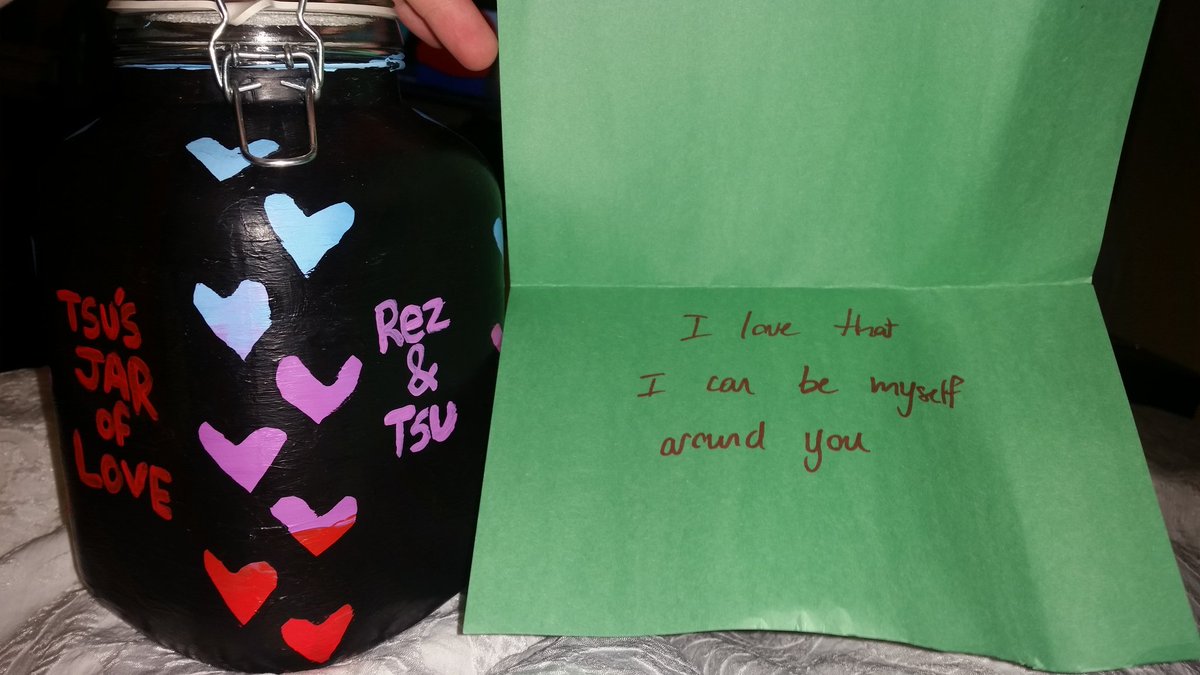 TSU'S
JAR
OF
LOVE
Rez
&
TSU
I love that
I can be myself
around you